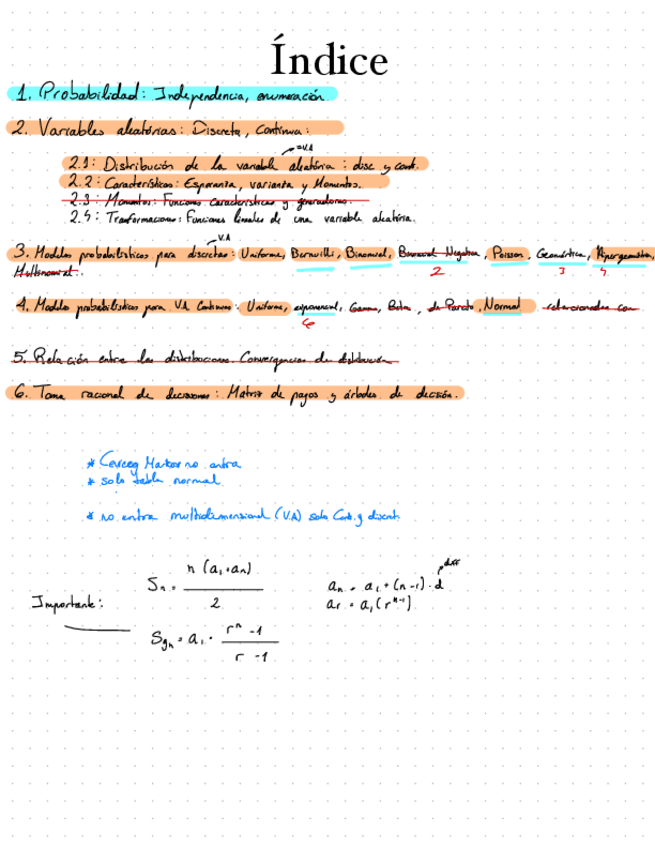 Índice
1. Probabilidad: Independencia, enumeración
2. Variables aleatórias: Discreta, continua:
=V.A
2.1: Distribución de la variable aleatória: disc y cont.
2.2: Caracteristicas: Esperanza, varianza y Momentos.
2.3: Momentos: Funciones características y generadoras.
2.4: Transformaciones: Funciones lineales de una variable aleatória.
V.A
3. Modelos probabilísticos para discretas: Uniforme, Bernuilli, Binomial, Binomial Negativa, Poisson, Geométrica, Hipergeométrica,
2 3 4
Multinomial.
4. Modelos probabilísticos para VA Continuas: Uniforme, exponencial, Gamma, Beta, de Pareto, Normal relacionadas con
6
5. Relación entre las distribuciones. Convergencias de distribución
6. Toma racional de decisiones: Matriz de pagos y árboles de decisión.
* Markov no entra
* solo tabla normal
* no entra multidimensional (V.A) solo Cont. y discret.
Importante:
Sn = n (a1 + an) / 2
diff
an = a1 + (n-1) · d
ar = a1 (r^n-1)
Sgn = a1 · r^n - 1 / r - 1